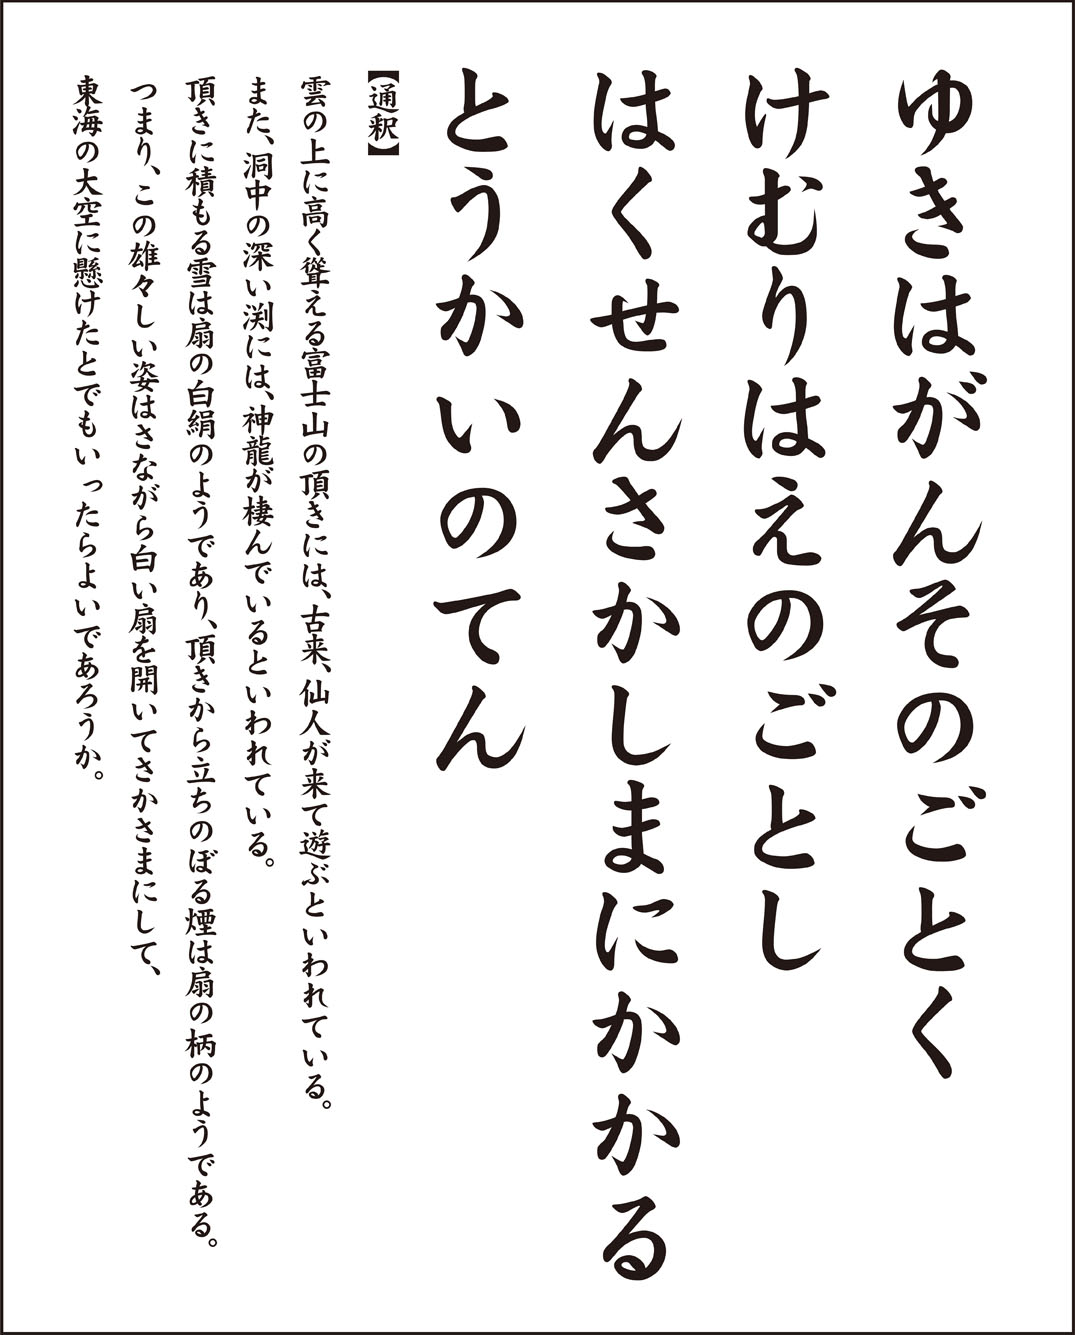 ゆきはがんそのごとく
けむりはえのごとし
はくせんさかしまにかかる
とうかいのてん
【通釈】
雲の上に高く聳える富士山の頂きには、古来、仙人が来て遊ぶといわれている。
また、洞中の深い渕には、神龍が棲んでいるといわれている。
頂きに積もる雪は扇の白絹のようであり、頂きから立ちのぼる煙は扇の柄のようである。
つまり、この雄々しい姿はさながら白い扇を開いてさかさまにして、
東海の大空に懸けたとでもいったらよいであろうか。